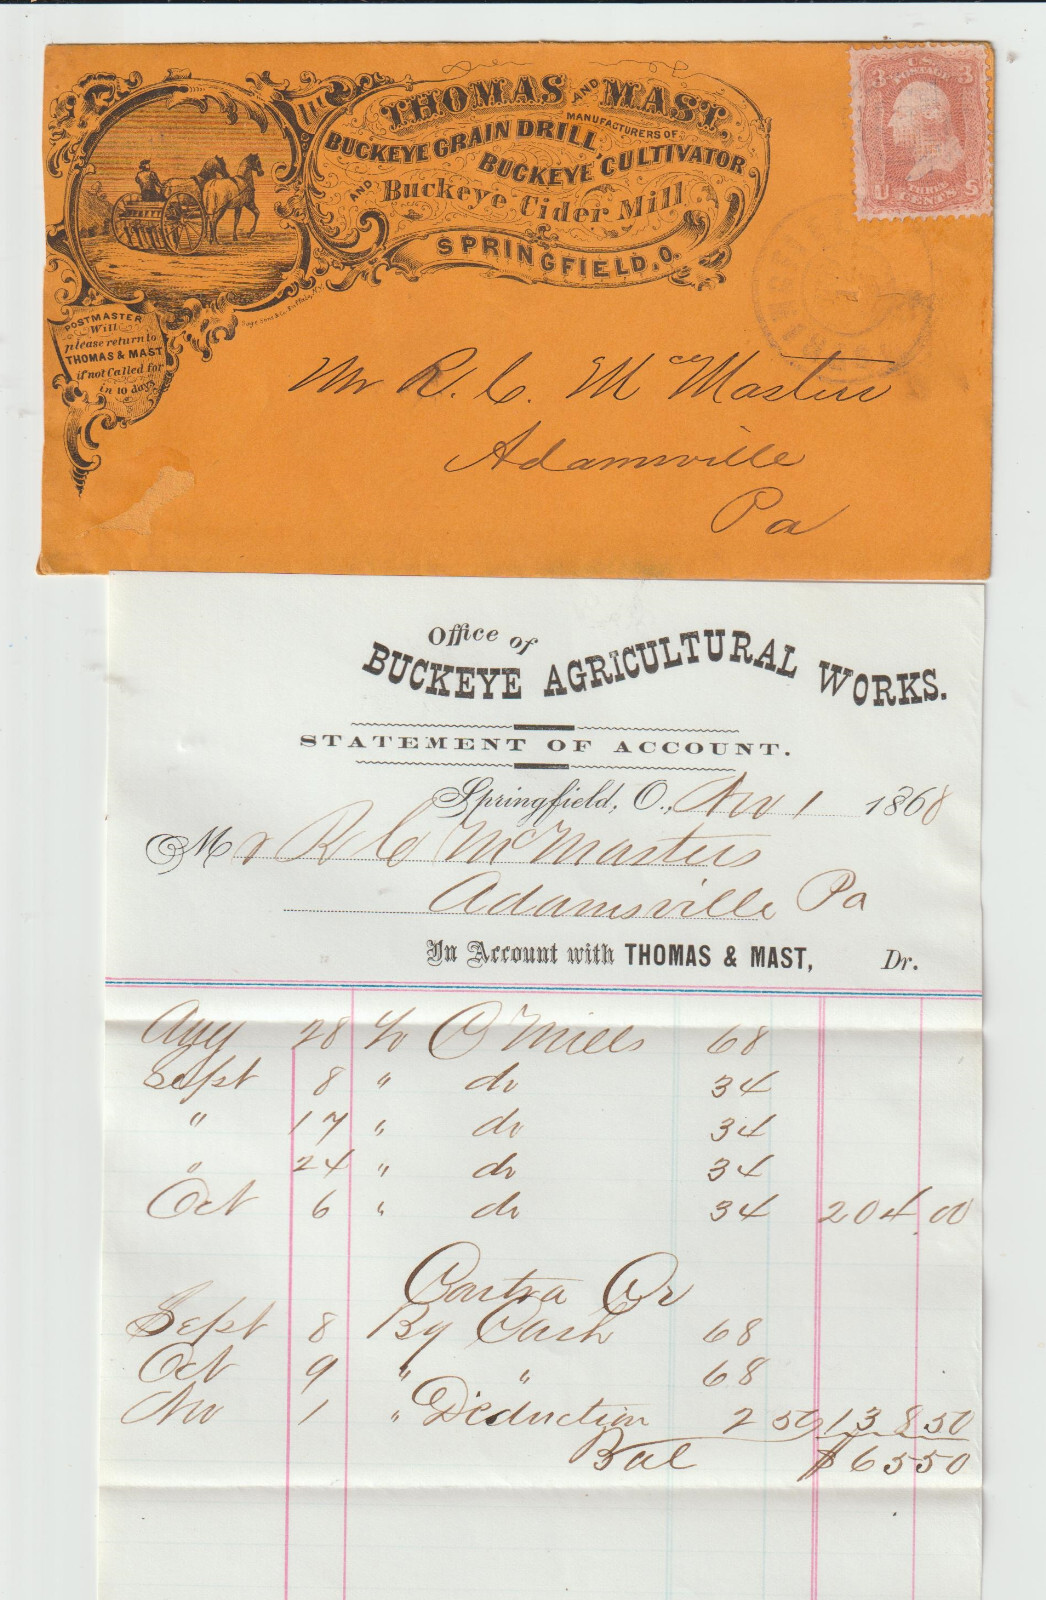 THOMAS AND MAST,
MANUFACTURERS OF
BUCKEYE GRAIN DRILL,
BUCKEYE CULTIVATOR
AND Buckeye Cider Mill
SPRINGFIELD, O.
POSTMASTER
Will
please return to
THOMAS & MAST
if not Called for
in 10 days
U.S.
POSTAGE
3 3
THREE
CENTS
U S
Mr R. C. McMasters
Adamsville
Pa
Office of
BUCKEYE AGRICULTURAL WORKS.
STATEMENT OF ACCOUNT.
Springfield, O., Nov 1 1868
Mr R C McMasters
Adamsville Pa
In Account with THOMAS & MAST, Dr.
Aug 28 To C Mills 68
Sept 8 " do 34
" 17 " do 34
" 24 " do 34
Oct 6 " do 34 204.00
Contra Cr
Sept 8 By Cash 68
Oct 9 " " 68
Nov 1 " Deduction 2 50 138 50
Bal $65 50